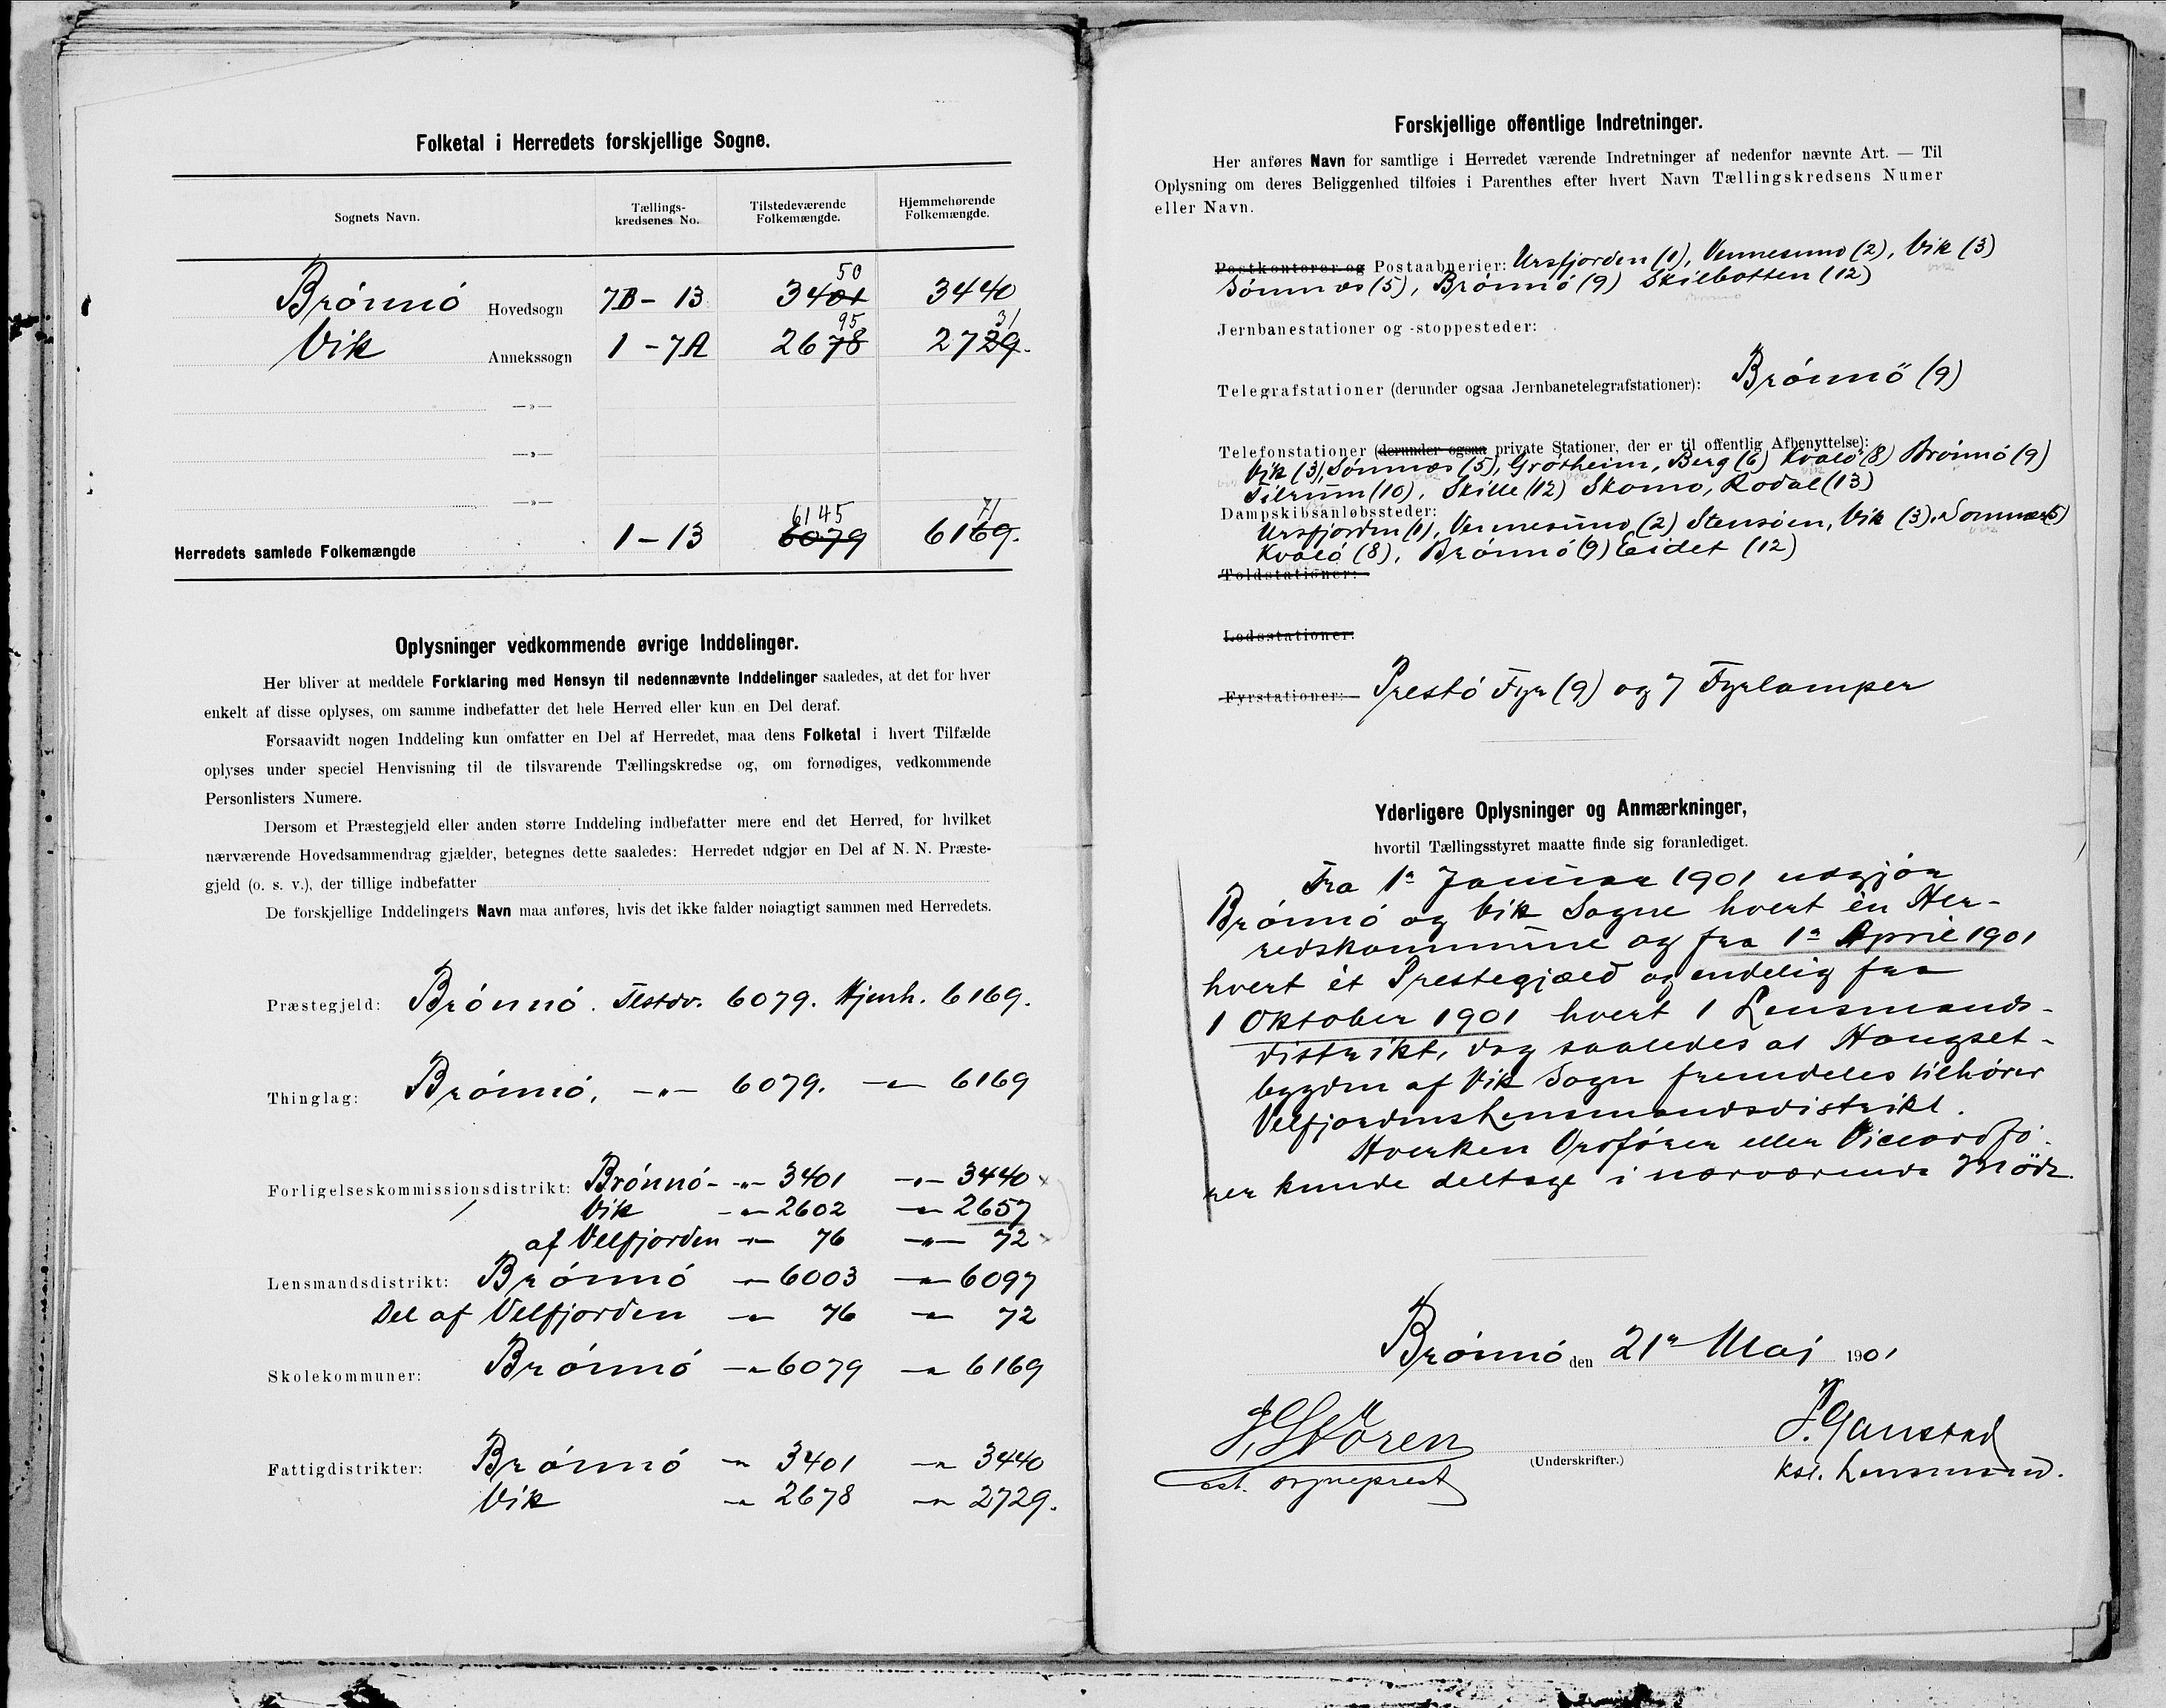 Folketal i Herredets forskjellige Sogne.
Sognets Navn. Tællings-kredsenes No. Tilstedeværende Folkemængde. Hjemmehørende Folkemængde.
50
Brönnö Hovedsogn 7B - 13 3401 3440
95 31
Vik Annekssogn 1 - 7A 2678 2729.
—»—
—»—
—»—
6145 71
Herredets samlede Folkemængde 1 - 13 6079 6169.
Oplysninger vedkommende øvrige Inddelinger.
Her bliver at meddele Forklaring med Hensyn til nedennævnte Inddelinger saaledes, at det for hver
enkelt af disse oplyses, om samme indbefatter det hele Herred eller kun en Del deraf.
Forsaavidt nogen Inddeling kun omfatter en Del af Herredet, maa dens Folketal i hvert Tilfælde
oplyses under speciel Henvisning til de tilsvarende Tællingskredse og, om fornødiges, vedkommende
Personlisters Numere.
Dersom et Præstegjeld eller anden større Inddeling indbefatter mere end det Herred, for hvilket
nærværende Hovedsammendrag gjælder, betegnes dette saaledes: Herredet udgjør en Del af N. N. Præste-
gjeld (o. s. v.), der tillige indbefatter
De forskjellige Inddelingers Navn maa anføres, hvis det ikke falder nøiagtigt sammen med Herredets.
Præstegjeld: Brönnö. Tlstdv. 6079. Hjemh. 6169.
Thinglag: Brönnö, —"— 6079. —"— 6169
Forligelseskommissionsdistrikt: Brönnö —"— 3401 —"— 3440
Vik —"— 2602 —"— 2657
af Velfjorden —"— 76 —"— 72
Lensmandsdistrikt: Brönnö —"— 6003 —"— 6097
Del af Velfjorden —"— 76 —"— 72
Skolekommuner: Brönnö —"— 6079 —"— 6169
Fattigdistrikter: Brönnö —"— 3401 —"— 3440
Vik —"— 2678 —"— 2729.
Forskjellige offentlige Indretninger.
Her anføres Navn for samtlige i Herredet værende Indretninger af nedenfor nævnte Art. — Til
Oplysning om deres Beliggenhed tilføies i Parenthes efter hvert Navn Tællingskredsens Numer
eller Navn.
Postkontorer og Postaabnerier: Ursfjorden (1), Vennesund (2), Vik (3)
Sömnæs (5), Brönnö (9) Skilbotten (12)
Jernbanestationer og -stoppesteder:
Telegrafstationer (derunder ogsaa Jernbanetelegrafstationer): Brönnö (9)
Telefonstationer (derunder ogsaa private Stationer, der er til offentlig Afbenyttelse):
Vik (3), Sömnæs (5), Grøtheim, Berg (6) Kvalö (8) Brönnö (9)
Tilrum (10), Skille (12) Skomo, Rodal (13)
Dampskibsanløbssteder:
Ursfjorden (1), Vennesund (2) Stensöen, Vik (3), Sömnæs (5)
Kvalö (8), Brönnö (9) Eidet (12)
Toldstationer:
Lodsstationer:
Fyrstationer: Prestö Fyr (9) og 7 Fyrlamper
Yderligere Oplysninger og Anmærkninger,
hvortil Tællingsstyret maatte finde sig foranlediget.
Fra 1ª Januar 1901 udgjör
Brönnö og Vik Sogne hvert èn Her-
redskommune og fra 1ª April 1901
hvert èt Prestegjæld og endelig fra
1 Oktober 1901 hvert 1 Lensmands-
distrikt, dog saaledes at Hongset-
bygden af Vik Sogn fremdeles tilhörer
Velfjordens Lensmandsdistrikt.
Hverken Ordförer eller Viceordfö-
rer kunde deltage i nærværende Möde.
Brönnö den 21ª Mai 1901
J. Stören
(Underskrifter.)
kst. Lensmand.